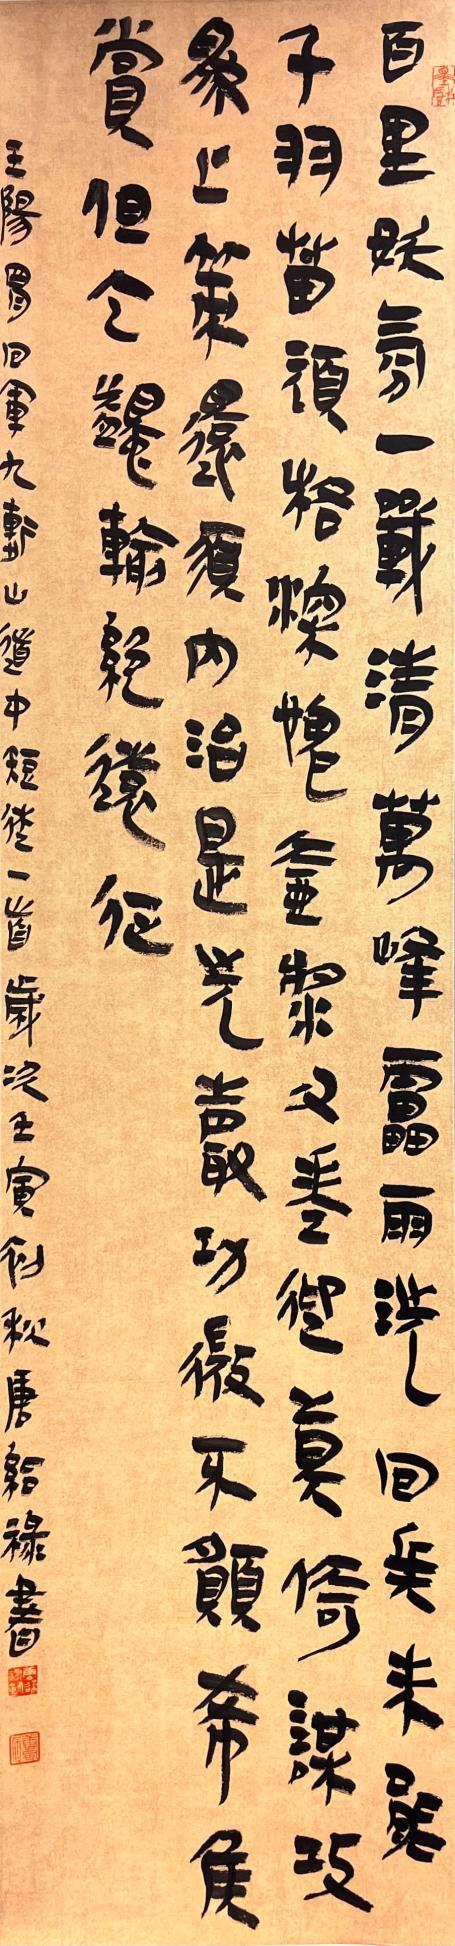 百里妖氛一戰清萬峰靁雨洗回兵未能
干羽苗頑格深愧壺漿父老迎莫倚謀攻
為上策還須內治是先聲功微不願希侯
賞但乞蠲輸絕橫征
王陽明回軍九連山道中短述一首歲次壬寅初秋唐紹祿書